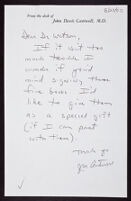 From the desk of
John Davis Cantwell, M.D.
Dear Dr. Watson,
If it isn't too
much trouble I
wonder if you'd
mind signing these
five books. I'd
like to give them
as a special gift
(if I can part
with them).
Thanks so